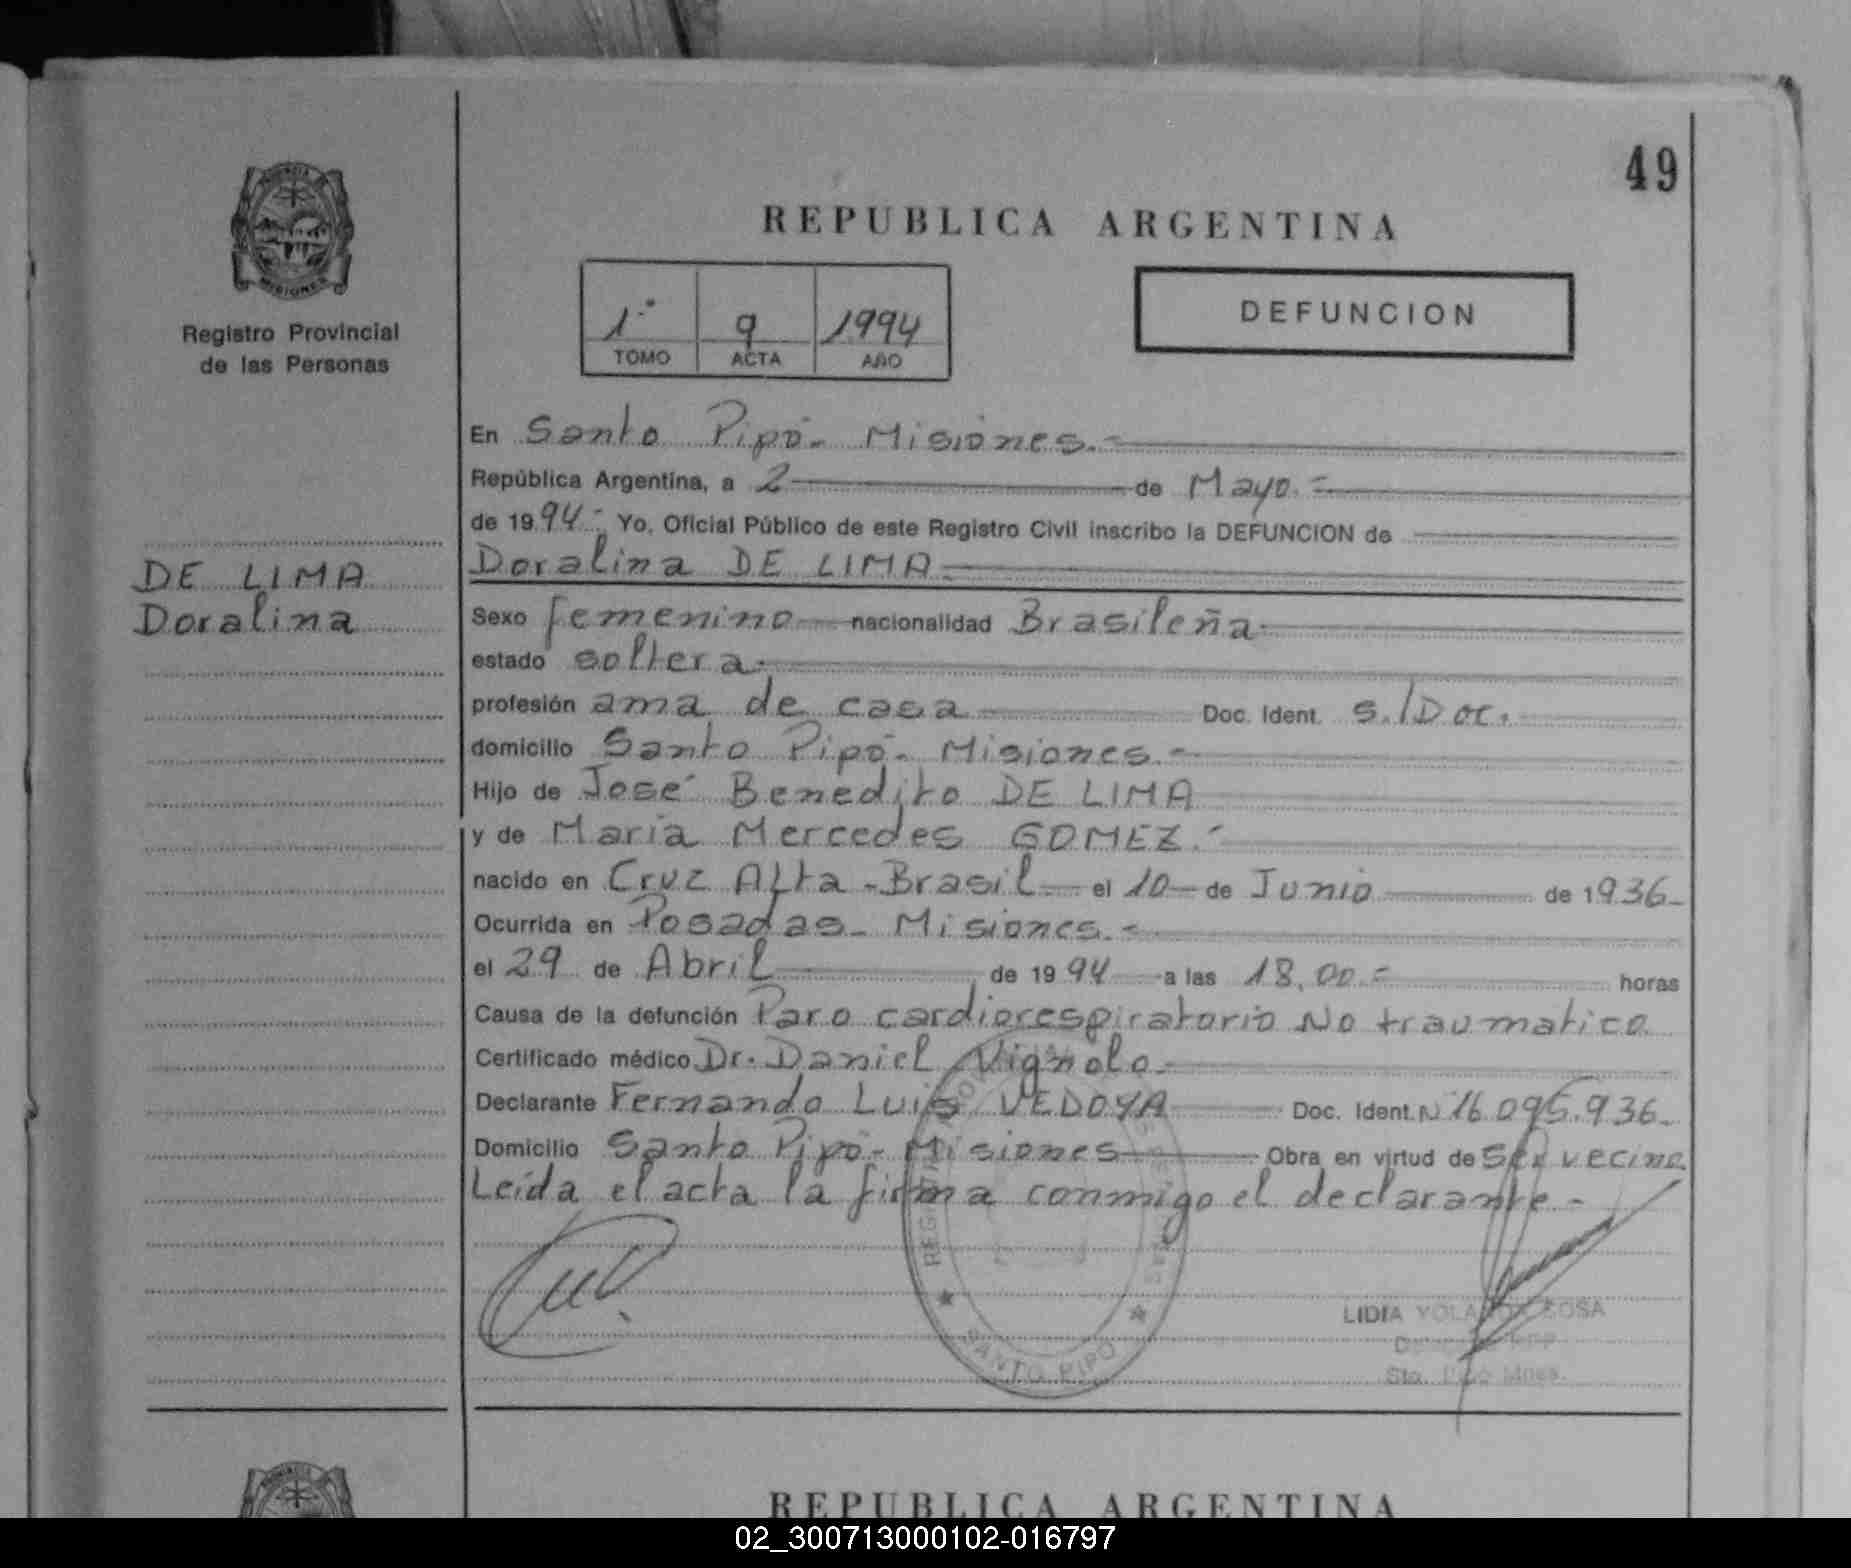 49
PROVINCIA DE
MISIONES
Registro Provincial
de las Personas
REPUBLICA ARGENTINA
1º 9 1994
TOMO ACTA AÑO
DEFUNCION
DE LIMA
Doralina
En Santo Pipó - Misiones.-
República Argentina, a 2 de Mayo.-
de 1994.- Yo, Oficial Público de este Registro Civil inscribo la DEFUNCION de
Doralina DE LIMA.-
Sexo femenino nacionalidad Brasileña.
estado soltera.
profesión ama de casa Doc. Ident. s./Doc.
domicilio Santo Pipó - Misiones.-
Hijo de José Benedito DE LIMA
y de Maria Mercedes GOMEZ.-
nacido en Cruz Alta - Brasil el 10 de Junio de 1936-
Ocurrida en Posadas - Misiones.-
el 29 de Abril de 1994 a las 18,00.- horas
Causa de la defunción Paro cardiorespiratorio No traumatico
Certificado médico Dr. Daniel Vignolo.-
Declarante Fernando Luis VEDOYA Doc. Ident. Nº 16.095.936-
Domicilio Santo Pipó - Misiones Obra en virtud de ser vecino
Leída el acta la firma conmigo el declarante -
SANTO PIPO
LIDIA YOLANDA SOSA
Sto. Pipó Mnes.
REPUBLICA ARGENTINA
02_300713000102-016797